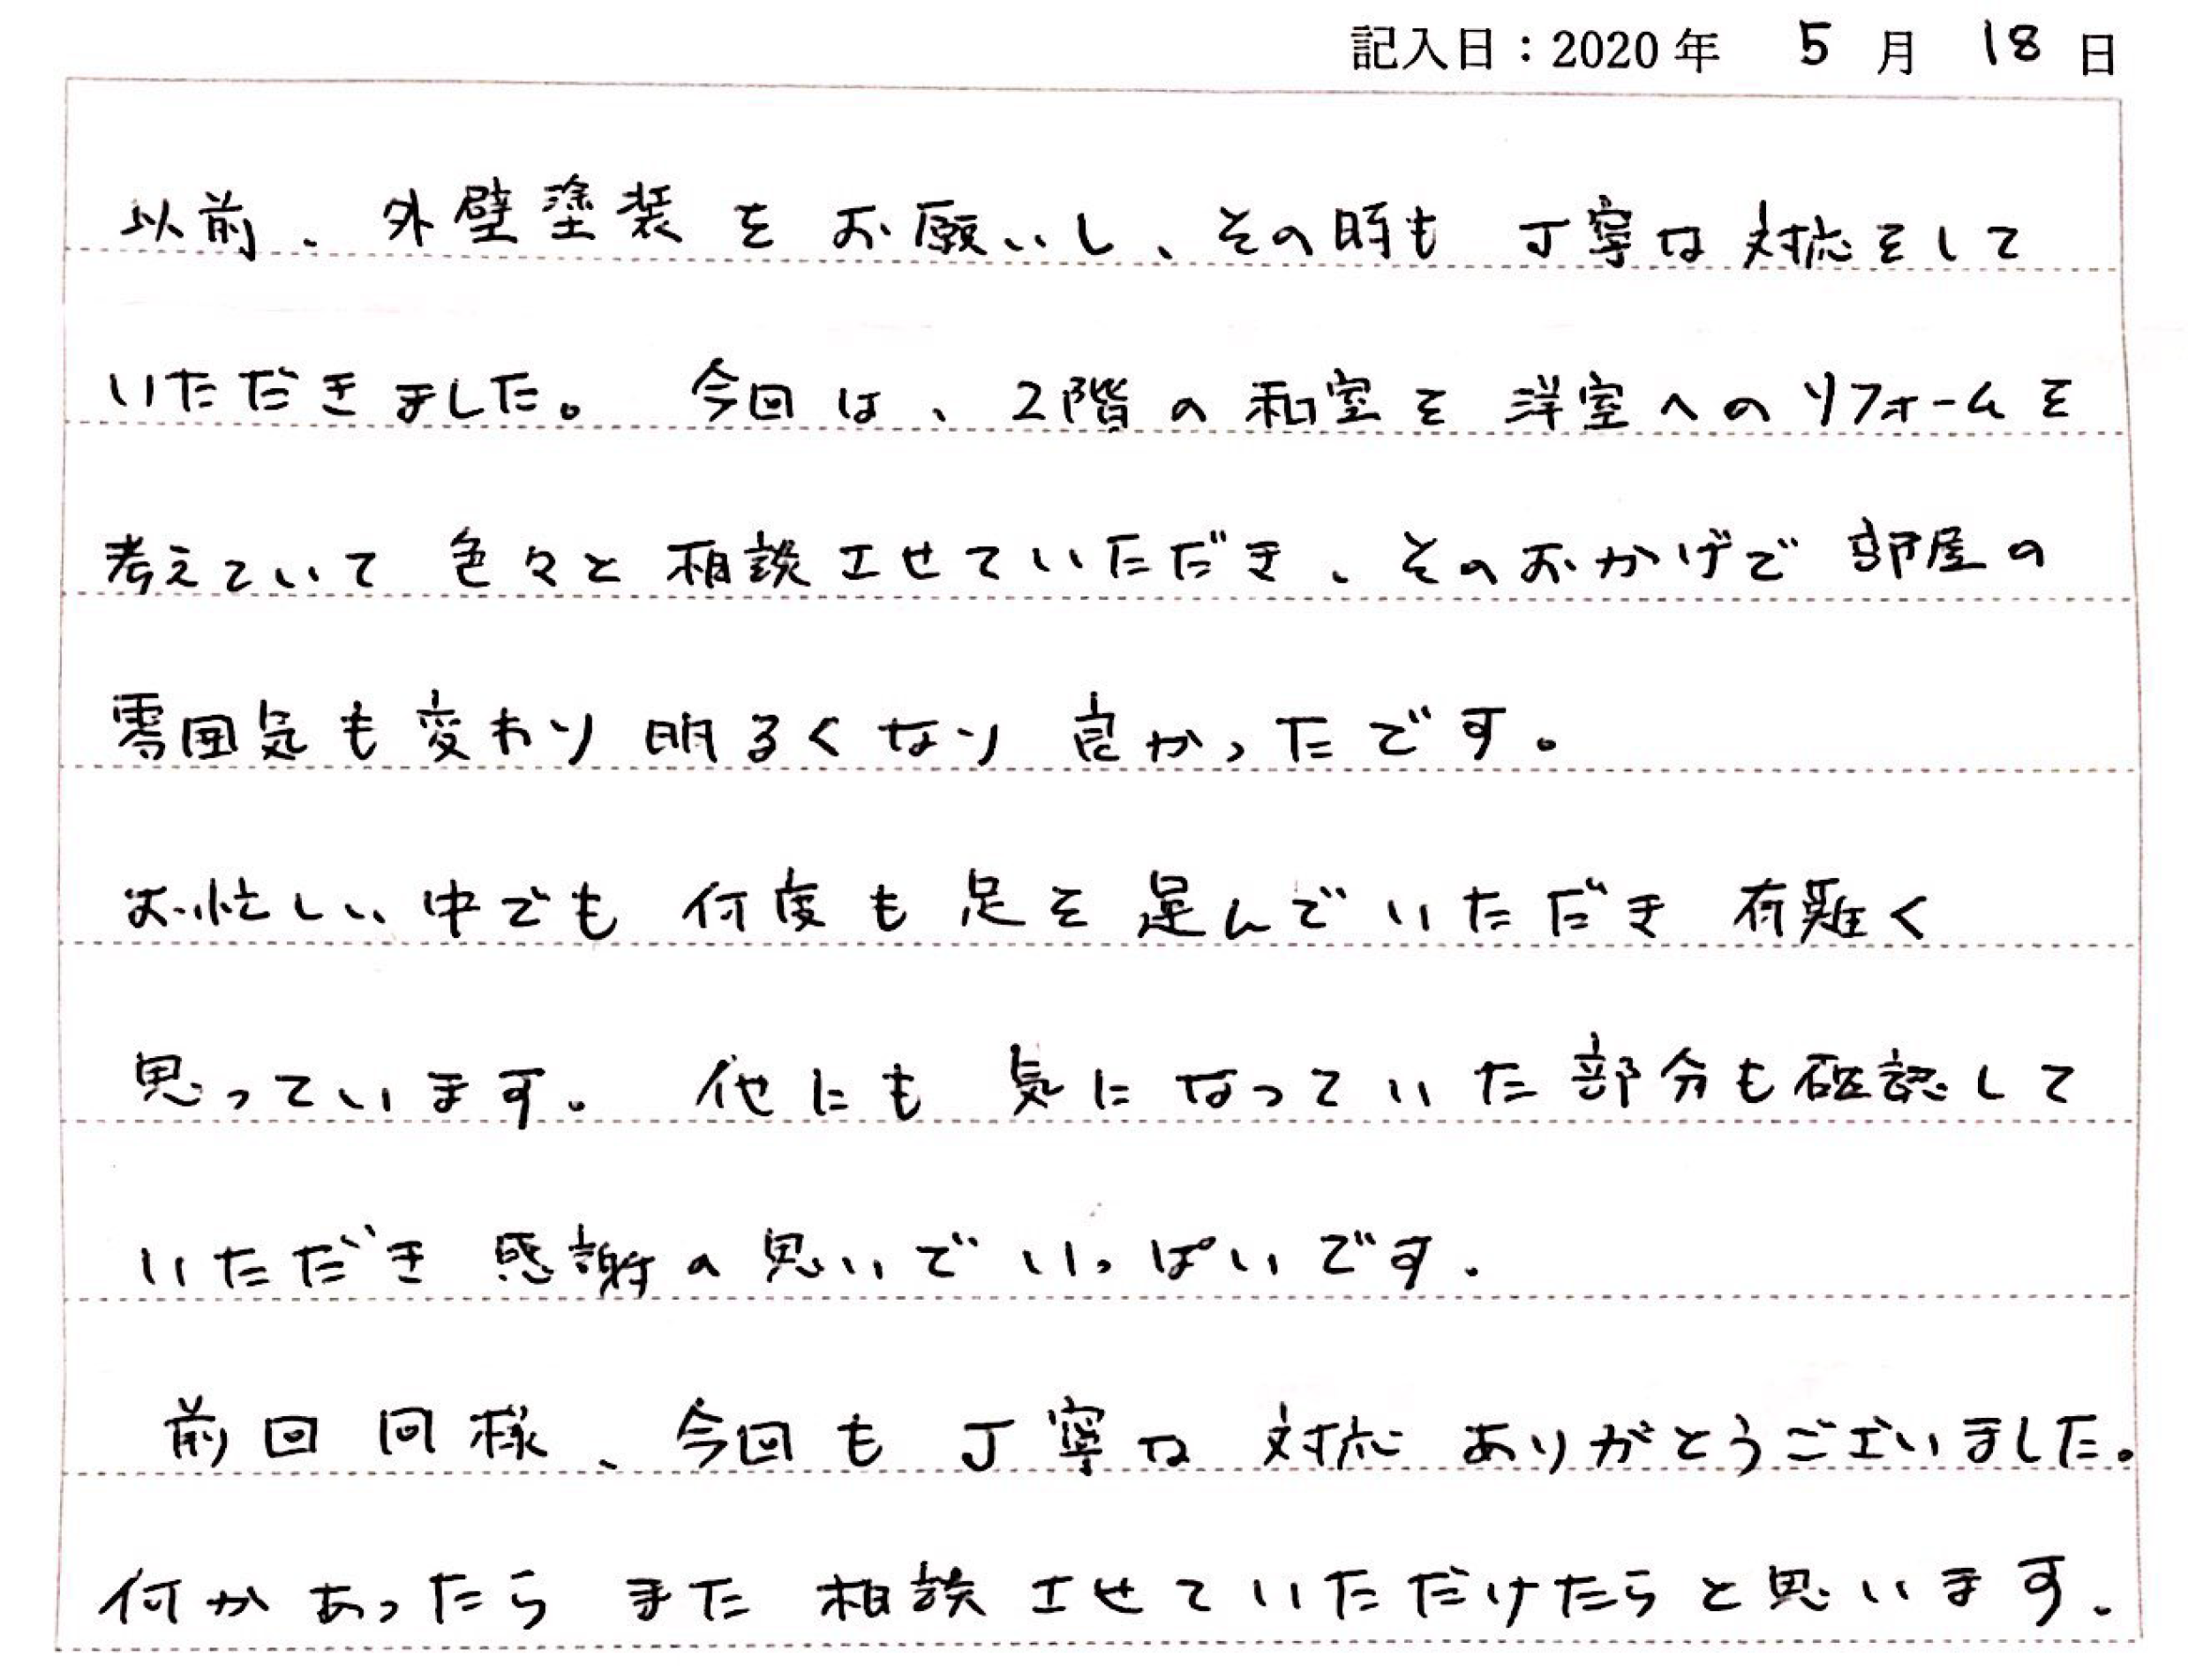 記入日：2020年 5月 18日
以前、外壁塗装をお願いし、その時も丁寧な対応をして
いただきました。今回は、2階の和室を洋室へのリフォームを
考えていて色々と相談させていただき、そのおかげで部屋の
雰囲気も変わり明るくなり良かったです。
お忙しい中でも何度も足を運んでいただき有難く
思っています。他にも気になっていた部分も確認して
いただき感謝の思いでいっぱいです。
前回同様、今回も丁寧な対応ありがとうございました。
何かあったらまた相談させていただけたらと思います。